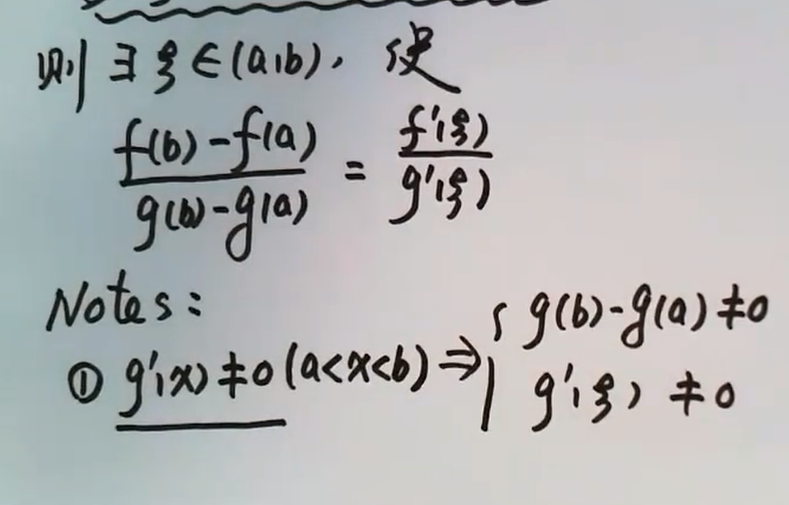 则 ∃ ξ ∈ (a,b), 使
f(b)-f(a) / g(b)-g(a) = f'(ξ) / g'(ξ)
Notes:
① g'(x) ≠ 0 (a<x<b) ⇒ { g(b)-g(a) ≠ 0
g'(ξ) ≠ 0